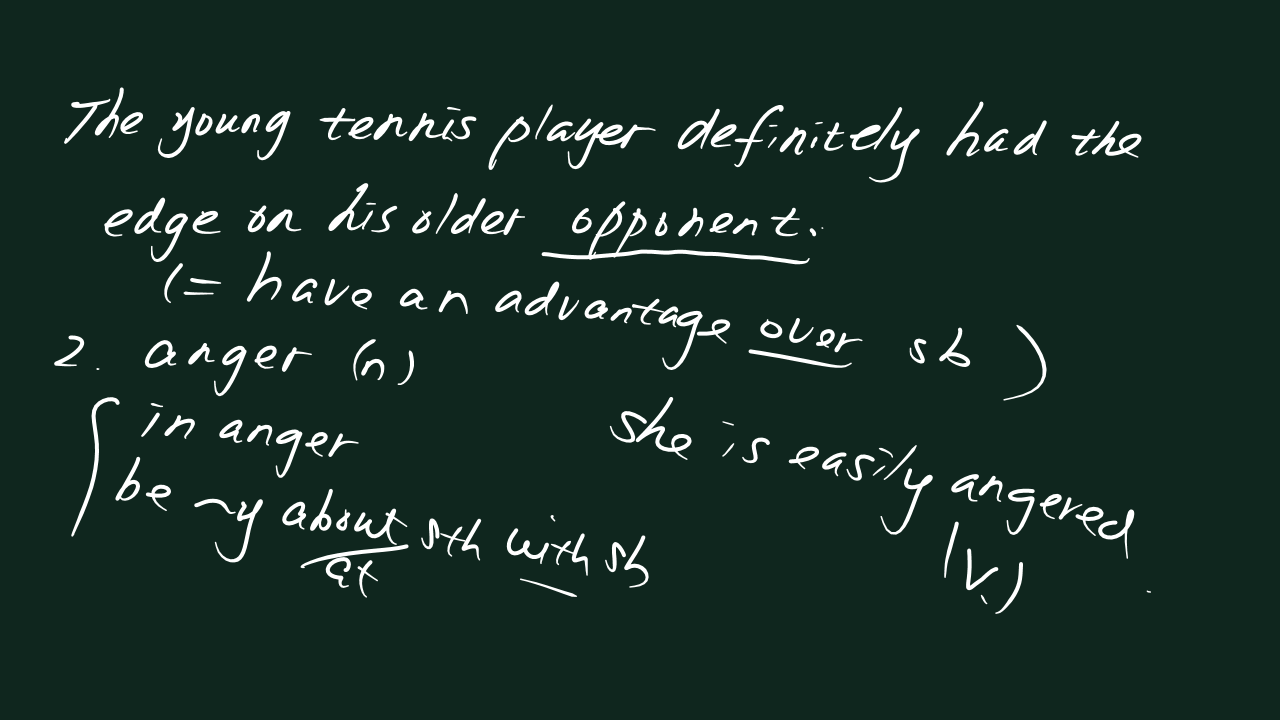 The young tennis player definitely had the
edge on his older opponent.
(= have an advantage over sb )
2. anger (n)
in anger
be ~y about/at sth with sb
she is easily angered
(v.)